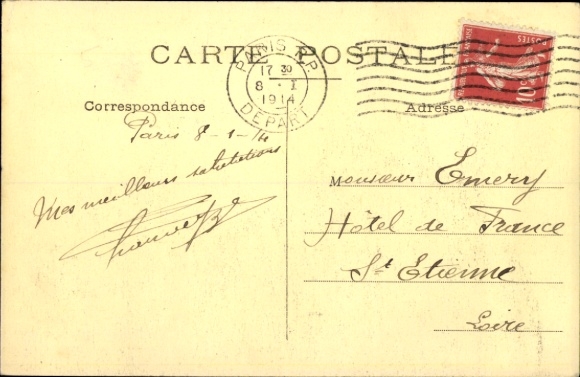 CARTE POSTALE
PARIS R.P.
17 30
8 · I
1914
DEPART
POSTES
10c
Correspondance
Adresse
Paris 8-1-14
Mes meilleurs salutations
Monsieur Emery
Hôtel de France
St Etienne
Loire